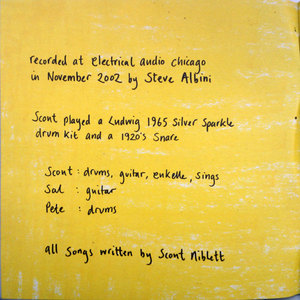 recorded at Electrical audio Chicago
in November 2002 by Steve Albini
Scout played a Ludwig 1965 Silver Sparkle
drum kit and a 1920's Snare
Scout : drums, guitar, eukelle, sings
Sal : guitar
Pete : drums
all songs written by Scout Niblett